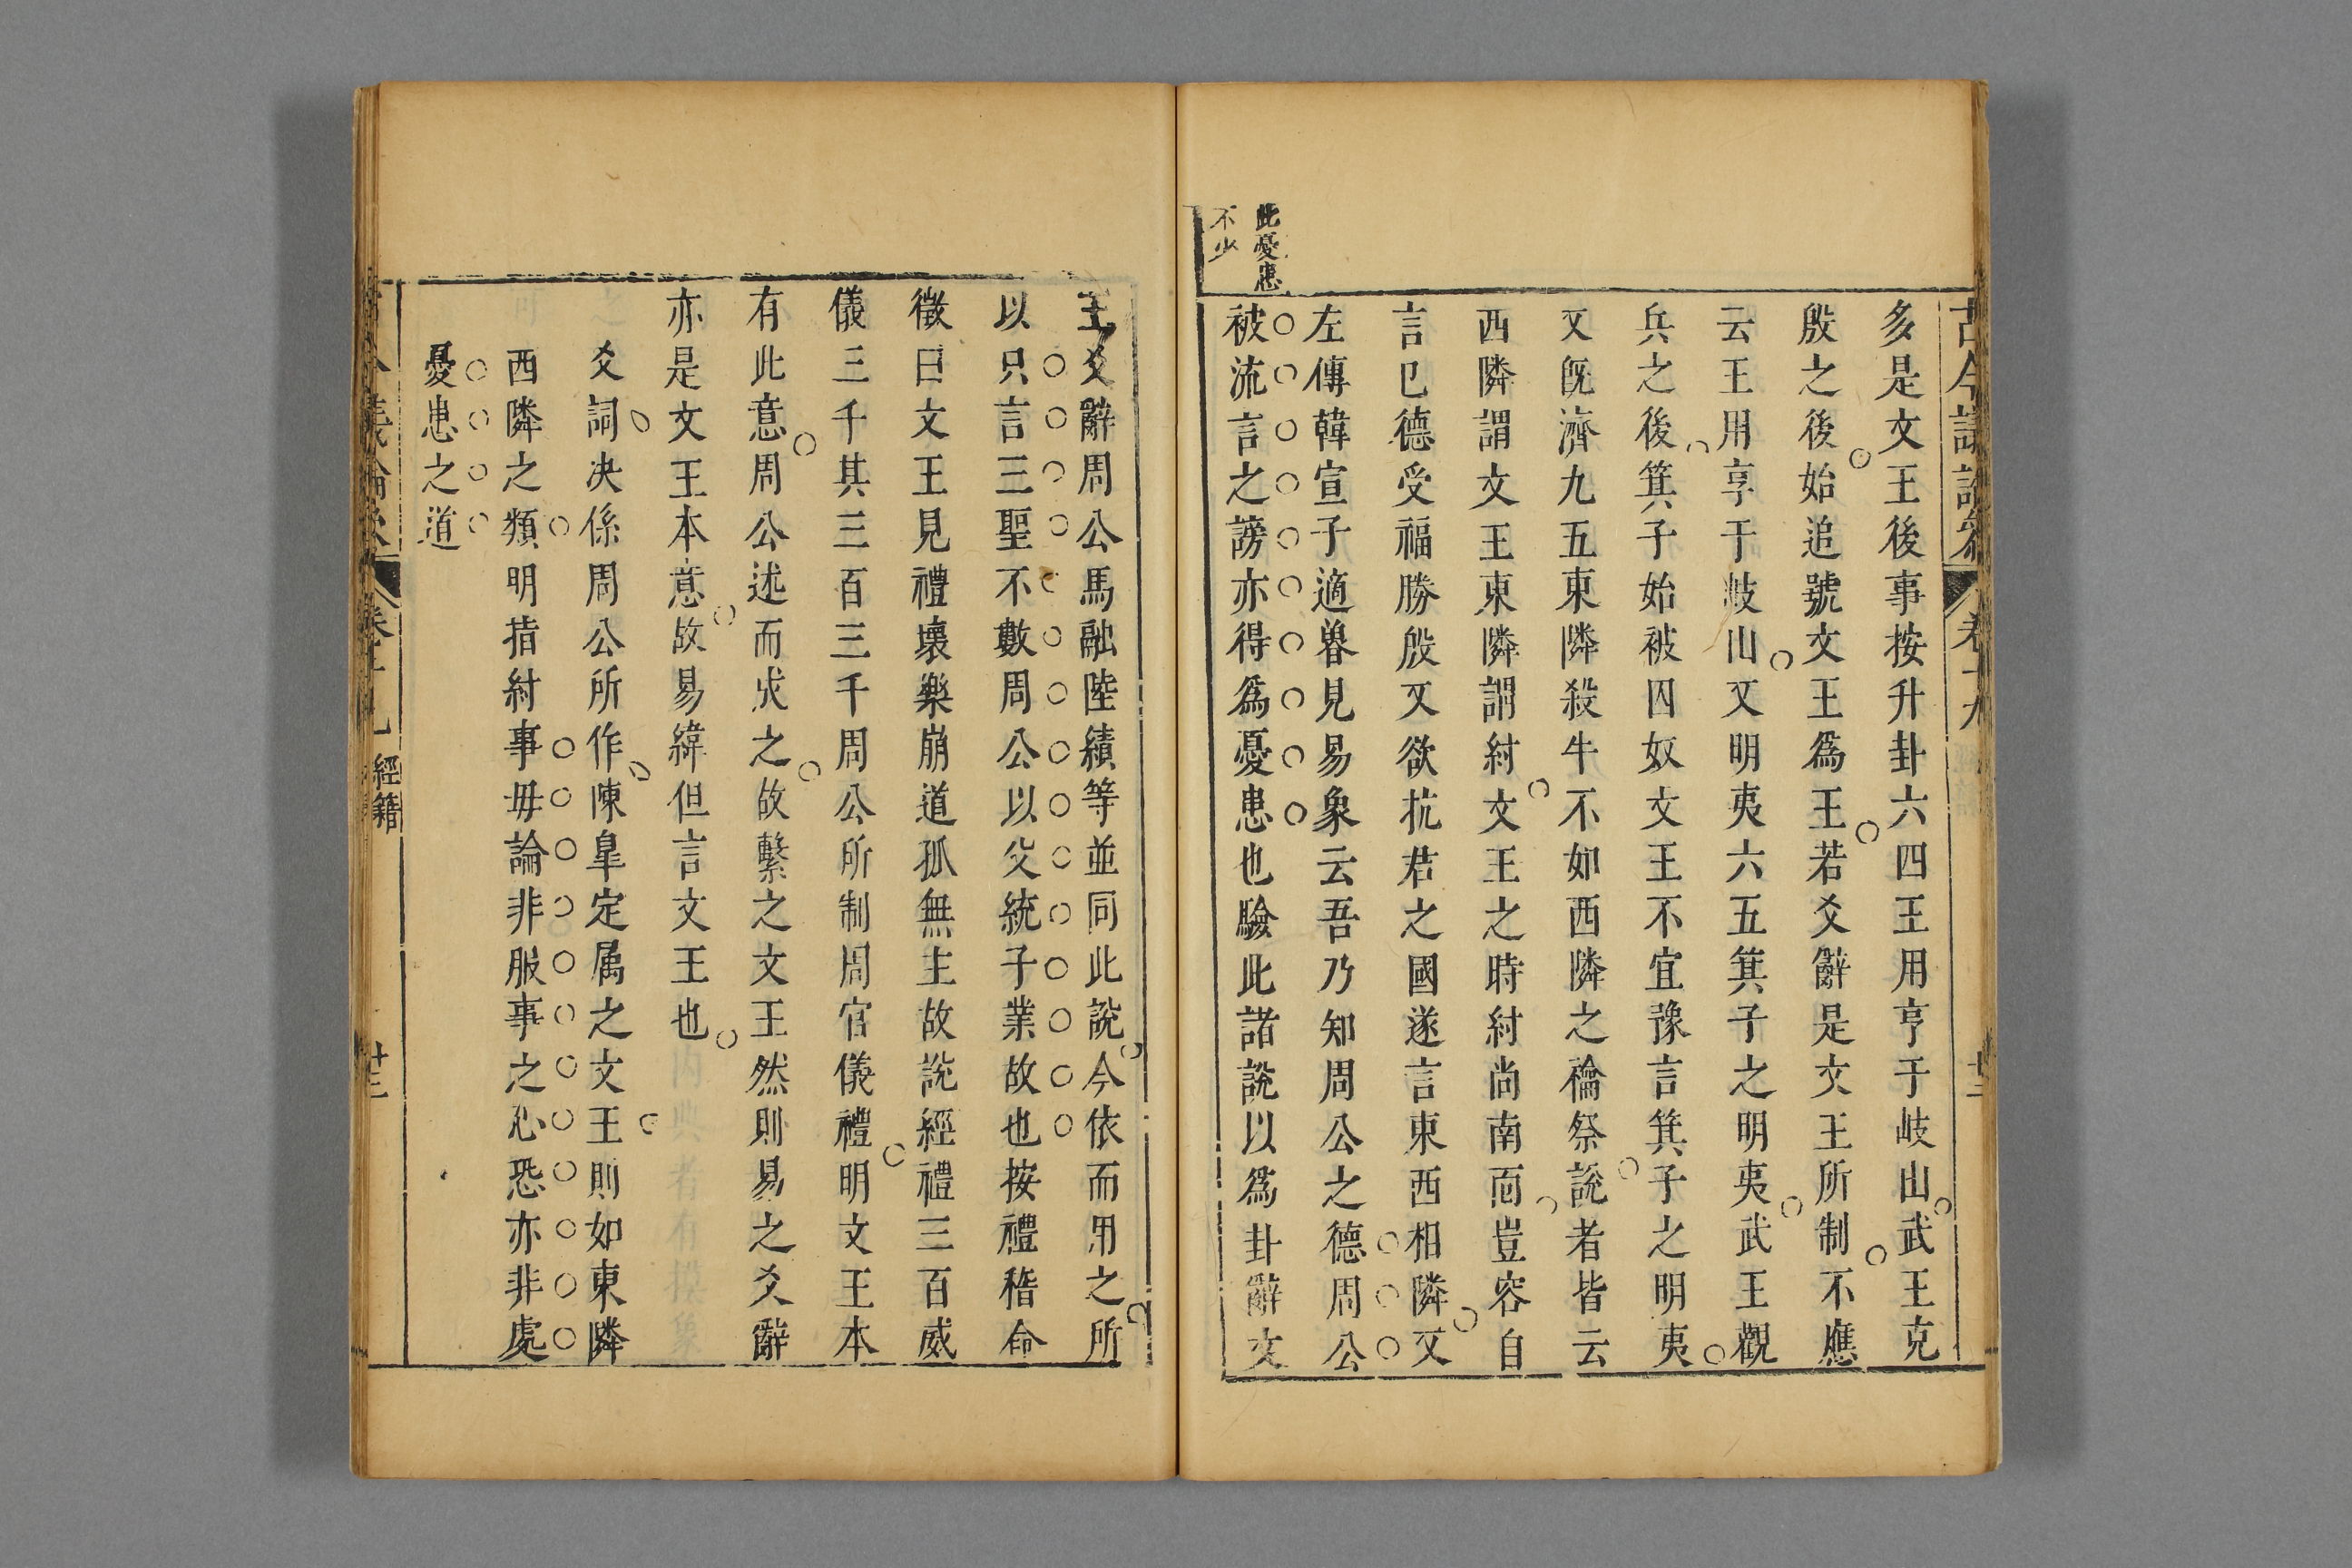 古今議論參 卷十九
多是文王後事按升卦六四王用亨于岐山武王克
殷之後始追號文王爲王若爻辭是文王所制不應
云王用享于岐山又明夷六五箕子之明夷武王觀
兵之後箕子始被囚奴文王不宜豫言箕子之明夷
又旣濟九五東隣殺牛不如西隣之禴祭說者皆云
西隣謂文王東隣謂紂文王之時紂尚南面豈容自
言已德受福勝殷又欲抗君之國遂言東西相隣又
左傳韓宣子適魯見易象云吾乃知周公之德周公
此憂患
不少
被流言之謗亦得爲憂患也驗此諸說以爲卦辭文
王爻辭周公馬融陸績等並同此說今依而用之所
以只言三聖不數周公以父統子業故也按禮稽命
徵曰文王見禮壞樂崩道孤無主故說經禮三百威
儀三千其三百三千周公所制周官儀禮明文王本
有此意周公述而成之故繫之文王然則易之爻辭
亦是文王本意故易緯但言文王也
爻詞决係周公所作陳臯定属之文王則如東隣
西隣之類明指紂事毋論非服事之心恐亦非處
憂患之道
經籍